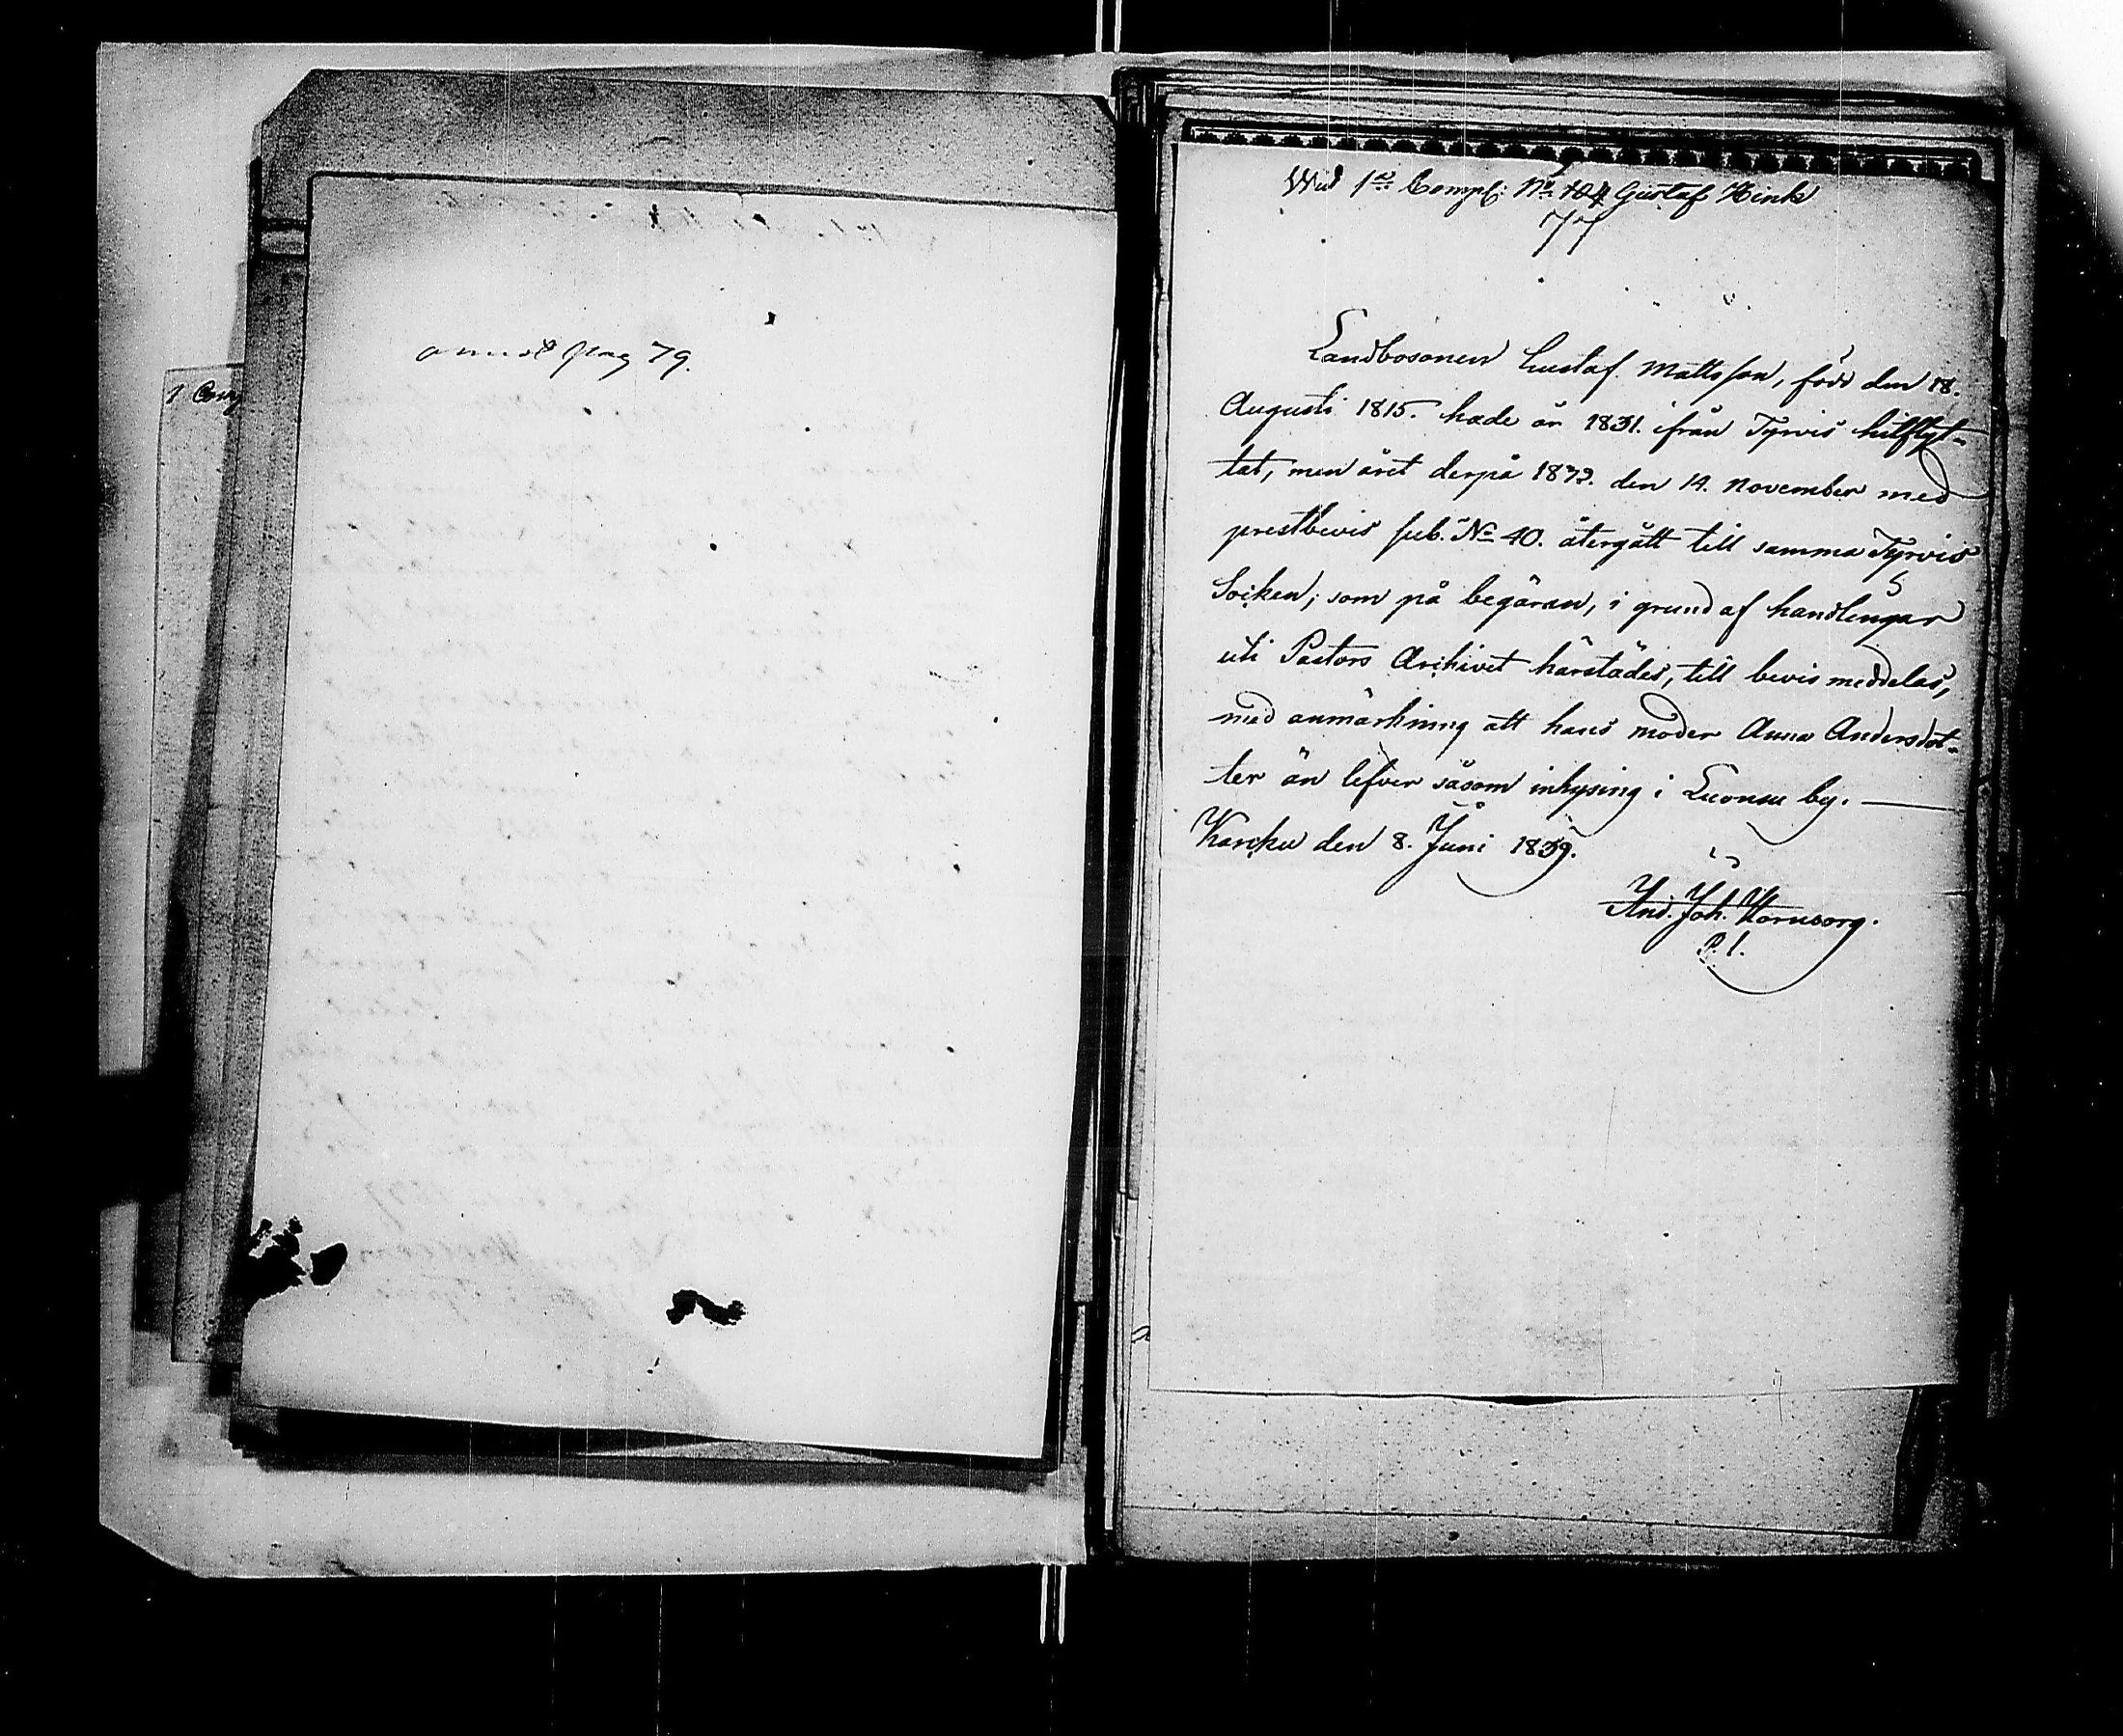 1 Comp
pag 79.
Wid 1a Comp: No 104 Gustaf Hink
77
Landbosonen Gustaf Mattsson, född den 18.
Augusti 1815. hade år 1831. från Tyrvis hitflyt-
tat, men året derpå 1832. den 14. November med
prestbevis sub. No 40. återgått till samma Tyrvis
Socken; som på begäran, i grund af handlingar
uti Pastors Archivet härstädes, till bevis meddelas,
med anmärkning att hans moder Anna Andersdot-
ter än lefver såsom inhysing i by.
Karku den 8. Juni 1839.
And. Joh. Hornborg.
P. l.